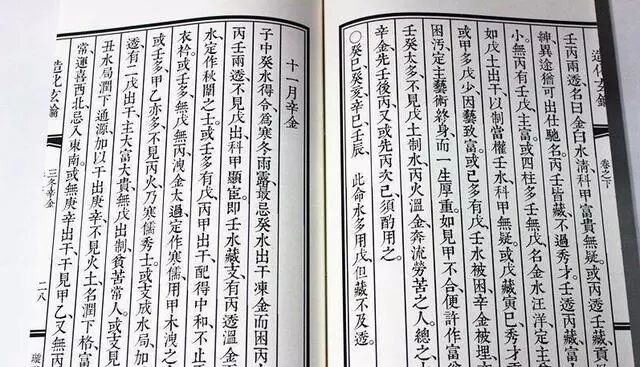 造化玄鑰 卷之下
壬丙兩透名曰金白水清、科甲富貴無疑、或丙透壬藏、富貢
紳異途儘可出仕馳名、丙壬皆藏不過秀才、壬透丙藏富
小、無丙有壬戊、主富、或四柱多壬無戊、名金水汪洋、定主
如戊土出干以制當權壬水、科甲無疑、或戊藏寅巳、秀才
或甲多戊少、因藝致富、或己多有戊、壬水被困、辛金被埋、
困汚定主藝術終身、而一生厚重、如見甲不合、便許作富
壬癸太多、不見戊土制水、丙火溫金、奔流勞苦之人、總之
辛金先壬後丙又或先丙次己須酌用之、
○癸巳、癸亥、辛巳、壬辰、 此命水多用戊但藏不及透、
十一月辛金
子中癸水得令、為寒冬雨露、最忌癸水出干凍金而困丙
丙壬兩透不見戊出、科甲顯宦、即壬水藏支、有丙透溫金
水、定作秋闈之士、或壬多有戊、丙甲出干、配得中和、不止
衣衿、或壬多、無戊、無丙、洩金太過、定作寒儒、用甲木洩
或壬多、甲乙亦多、不見丙火、乃寒儒秀士、或支成水局、加
透、有二戊出干、主大富大貴、無戊出制、貧苦常人、或支見
丑水局潤下通源加以干出庚辛、不見火土、名潤下格、富
常、運喜西北、忌入東南、或無庚辛出干、干見甲乙、又無丙
造化玄鑰 三冬辛金 二八